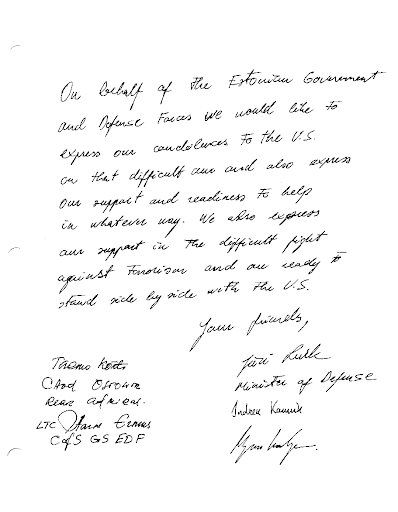 On behalf of the Estonian Government
and Defense Forces we would like to
express our condolences to the U.S.
on that difficult and also express
our support and readiness to help
in whatever way. We also express
our support in the difficult fight
against Terrorism and are ready to
stand side by side with the U.S.
Your friends,
Jüri Luik
Minister of Defense
Tarmo Kõuts
CHOD
Rear Admiral.
LTC
CofS GS EDF